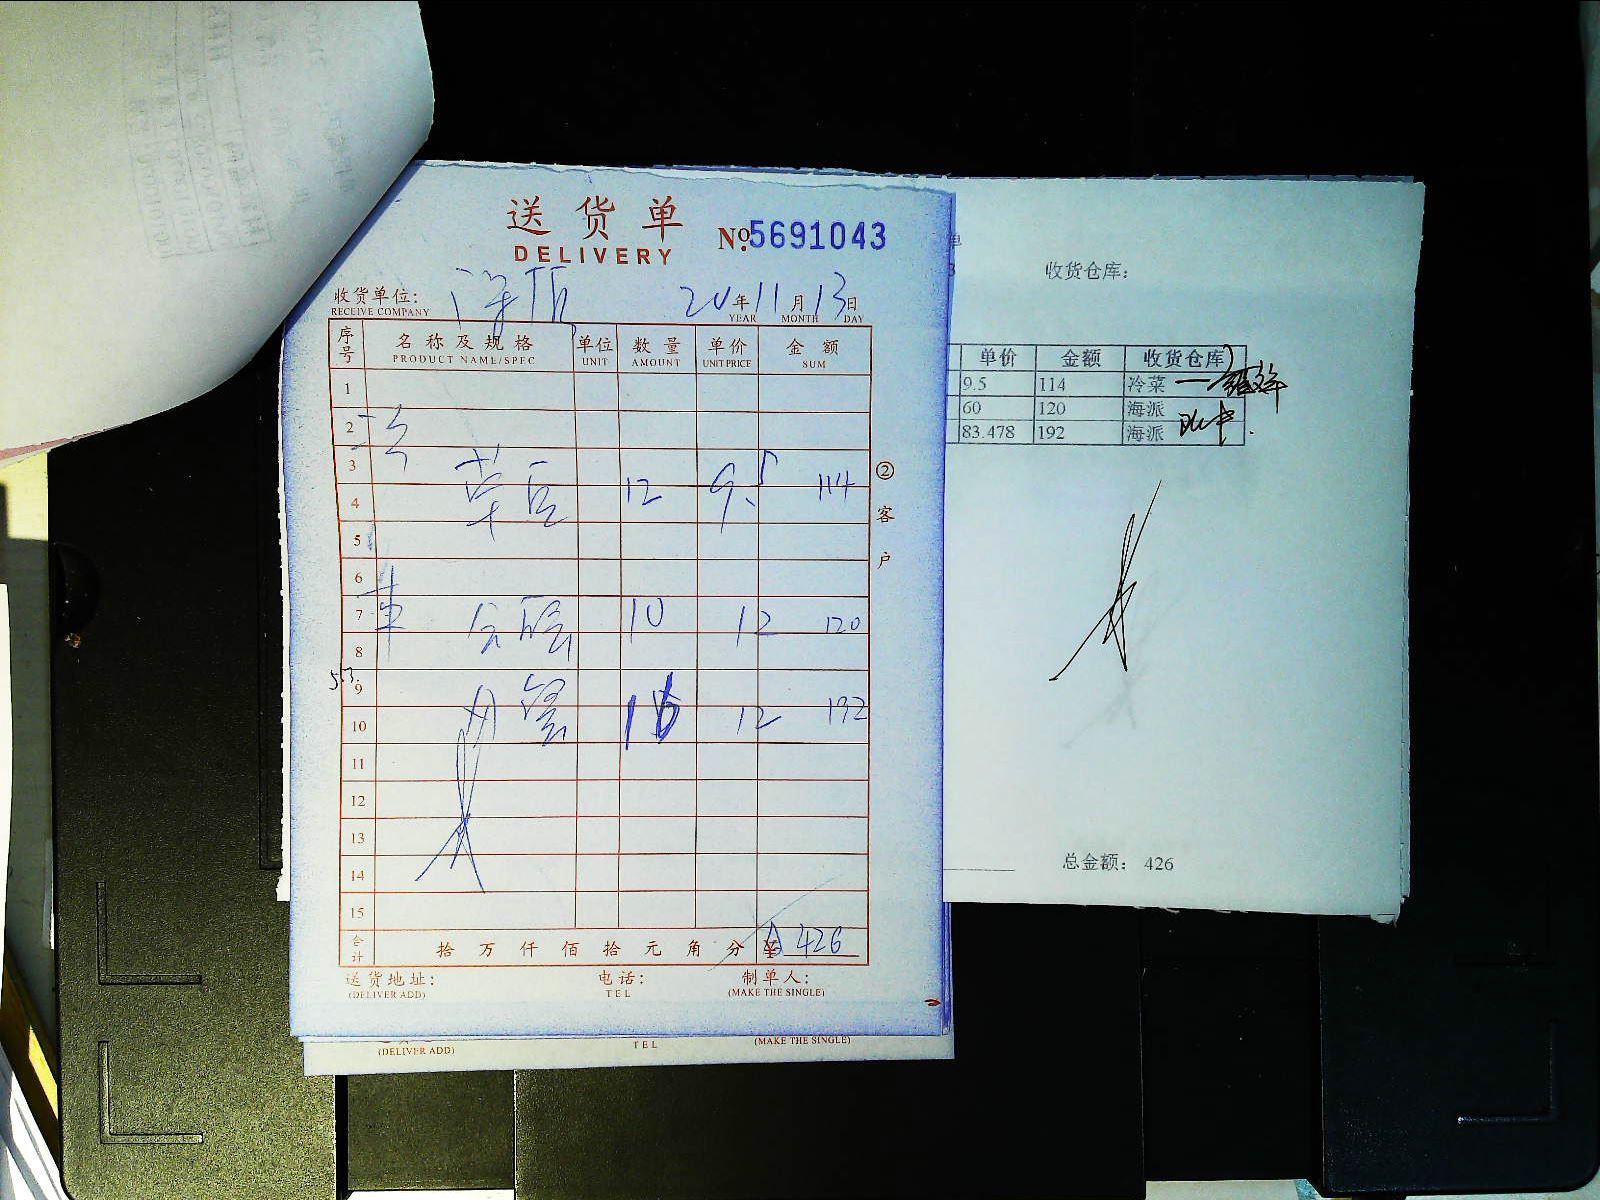 送货单
DELIVERY
№ 5691043
收货单位：
RECEIVE COMPANY
20年11月13日
YEAR MONTH DAY
序号 名称及规格 单位 数量 单价 金额
PRODUCT NAME/SPEC UNIT AMOUNT UNIT PRICE SUM
1
2
3
4 草豆 12 9.5 114
5
6
7 10 12 120
8
9
10 16 12 192
11
12
13
14
15
合计 拾 万 仟 佰 拾 元 角 分 ¥ 426
送货地址： 电话： 制单人：
(DELIVER ADD) TEL (MAKE THE SINGLE)
②客户
(DELIVER ADD) TEL (MAKE THE SINGLE)
收货仓库：
单价 金额 收货仓库
9.5 114 冷菜
60 120 海派
83.478 192 海派
总金额： 426